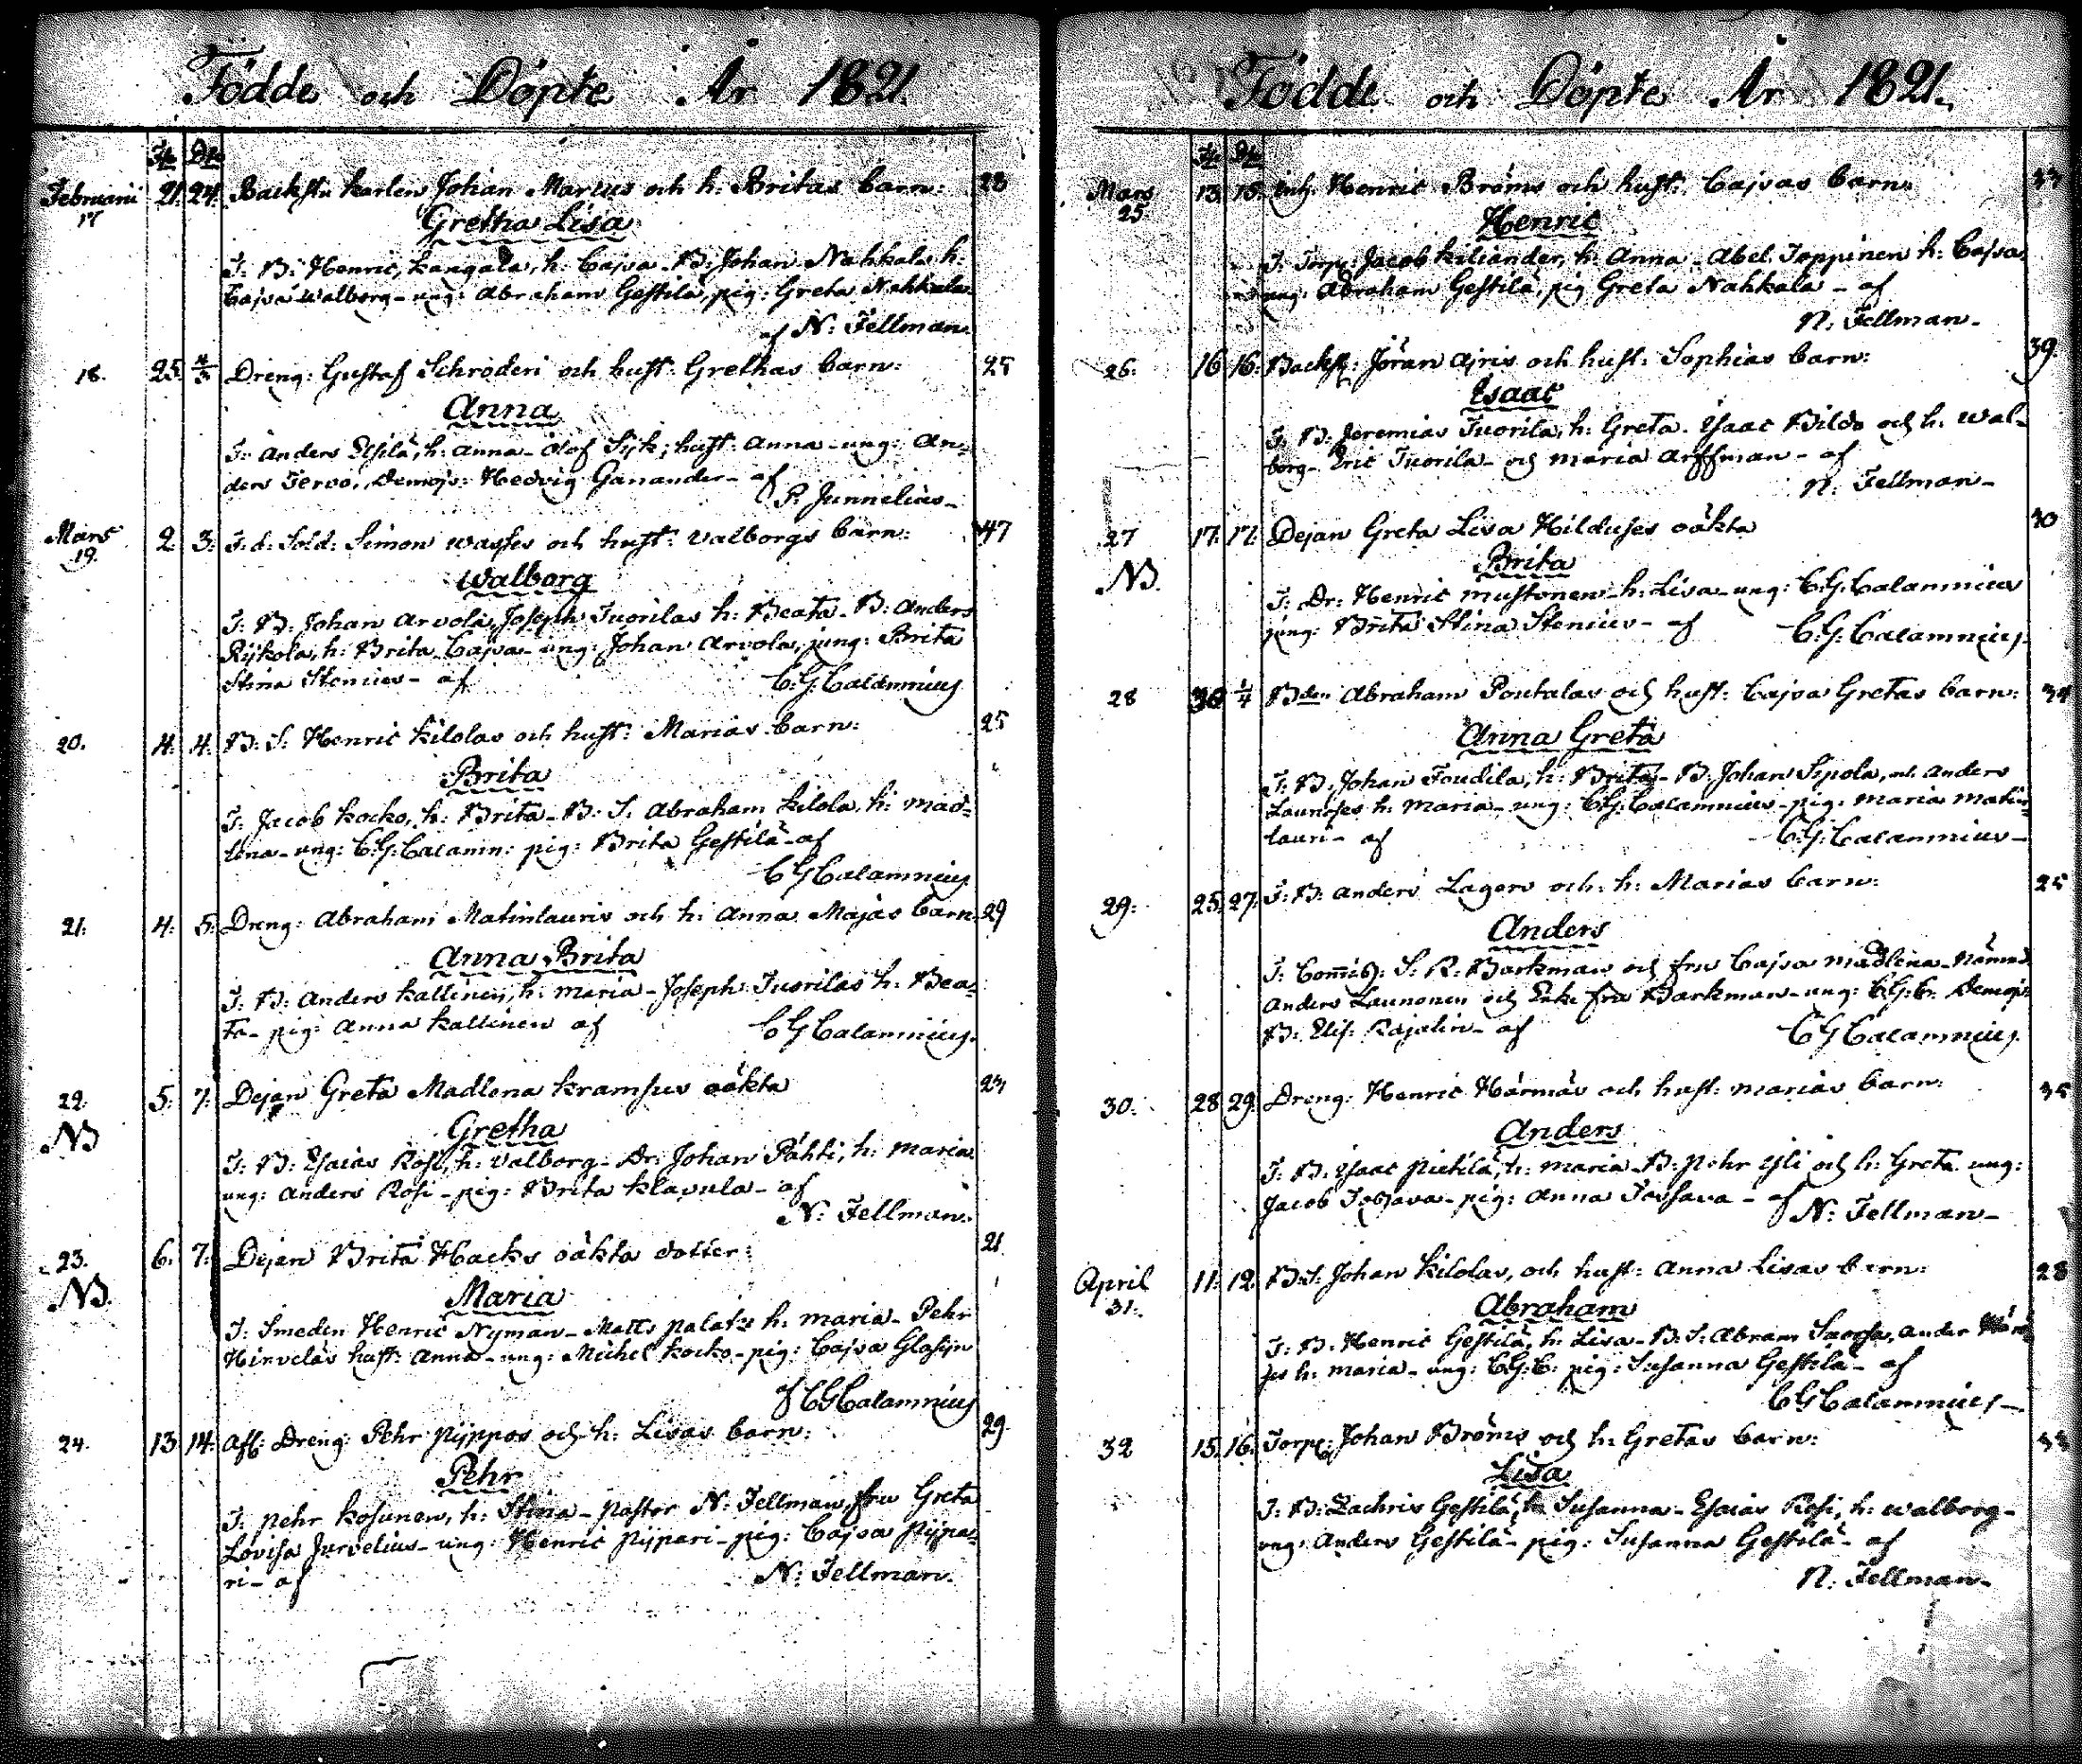 Födde och Döpte År 1821.
Fde Dte
Februarii 21. 24. Backst: karlen Johan Marcus och h: Britas barn: 28
17
Gretha Lisa
T: B: Henric Kangala, h: Cajsa. B: Johan Nahkala h:
Cajsa Walborg - ung: Abraham Gestilä, pig: Greta Nahkala
af N: Fellman.
18. 25. 4/3 Dreng: Gustaf Schroderi och hust: Grethas barn: 25
Anna
T: Anders h: Anna - Olof Sijk; hust: Anna - ung: An=
ders Tervo, Demois: Hedvig Ganander - af
P: Junnelius -
Mars 2. 3. F. d. Sold: Simon Wasses och hust: Valborgs barn: 47
19.
Walborg
T: B: Johan Arvola, Joseph Tuorilas h: Beata - B: Anders
Rijkola, h: Brita Cajsa - ung: Johan Arvola, jung: Brita
Stina Stenius - af C:G:Calamnius
20. 4. 4. B: S: Henric Kilolas och hust: Marias barn: 25
Brita
T: Jacob Kocko, h: Brita - B: S: Abraham Kilola, h: Mad=
lena - ung: C:G:Calamn: pig: Brita Gestilä - af
C G Calamnius
21. 4. 5. Dreng: Abraham Matinlauris och h: Anna Majas barn. 29
Anna Brita
T: B: Anders Kallinen, h: Maria - Joseph Tuorilas h: Bea=
ta - pig: Anna Kallinen af C G Calamnius.
22. 5. 7. Dejan Greta Madlena Kramsus oäkta 23
NB
Gretha
T: B: Esaias Rosi, h: Valborg - Dr: Johan Pähti, h: Maria
ung: Anders Rosi - pig: Brita Klapula - af
N: Fellman.
23. 6. 7. Dejan Brita Hacks oäkta dotter: 21
NB.
Maria
T: Smeden Henric Nyman - Matts Palaks h: Maria - Pehr
Hirveläs hust: Anna - ung: Michel Kocko - pig: Cajsa
af C G Calamnius
24. 13. 14. Afsk: Dreng: Pehr Pijppos och h: Lisas barn: 29.
Pehr
T: Pehr Kosunen, h: Stina - Pastor N: Fellman, fru Greta
Lovisa Jurvelius - ung: Henric Pijpari - pig: Cajsa Pijpa=
ri - af N: Fellman.
Födde och Döpte År 1821.
Fde Dte
Mars 13. 15. Inh. Henric Bröms och hust: Cajsas barn: 33
25.
Henric
T: Torp: Jacob Kiliander, h: Anna - Abel Toppinen h: Cajsa
ung: Abraham Gestilä, pig Greta Nahkala - af
N: Fellman -
26. 16. 16. Backst: Jöran Ajris och hust: Sophias barn: 39.
Isaac
T: B: Jeremias Tuorila, h: Greta. Isaac Bildo och h: Wal=
borg - Eric Tuorila - och Maria Arffman - af
N: Fellman -
27 17. 17. Dejan Greta Lisa Hilduses oäkta 30
NB.
Brita
T: Dr: Henric Mustonen - h: Lisa - ung: C:G:Calamnius
jung: Brita Stina Stenius - af C:G:Calamnius.
28 30 1/4 Bden Abraham Poutalas och hust: Cajsa Gretas barn: 34
Anna Greta
T: B: Johan Toudila, h: Brita - B: Johan Sipola, och Anders
h: Maria - ung: C:G:Calamnius - pig: Maria Matin=
lauri - af C:G:Calamnius -
29. 25. 27. F: B: Anders Lagers och h: Marias barn: 25
Anders
T: Commiss: S: R: Barkman och fru Cajsa Madlena - Nämnd.
Anders Launonen och Enke fru Barkman - ung: C:G:C: Demois:
B: Elis: Rajalin - af C G Calamnius.
30. 28 29. Dreng: Henric Härmäs och hust: Marias barn: 35
Anders
T: B: Isaac Pietilä, h: Maria - B: Pehr Yli och h: Greta. ung:
Jacob Tossava - pig: Anna Tossava - af N: Fellman -
April 11. 12. B:S: Johan Kilolas, och hust: Anna Lisas barn: 28
31.
Abraham
T: B: Henric Gestilä, h: Lisa - B: S: Abram Anders
h: Maria - ung: C:G:C: pig: Susanna Gestilä - af
C G Calamnius -
32 15. 16. Torp: Johan Bröms och h: Gretas barn: 33
Lisa
T: B: Zachris Gestilä, h: Susanna - Esaias Rosi, h: Walborg -
ung: Anders Gestilä - pig: Susanna Gestilä - af
N: Fellman -